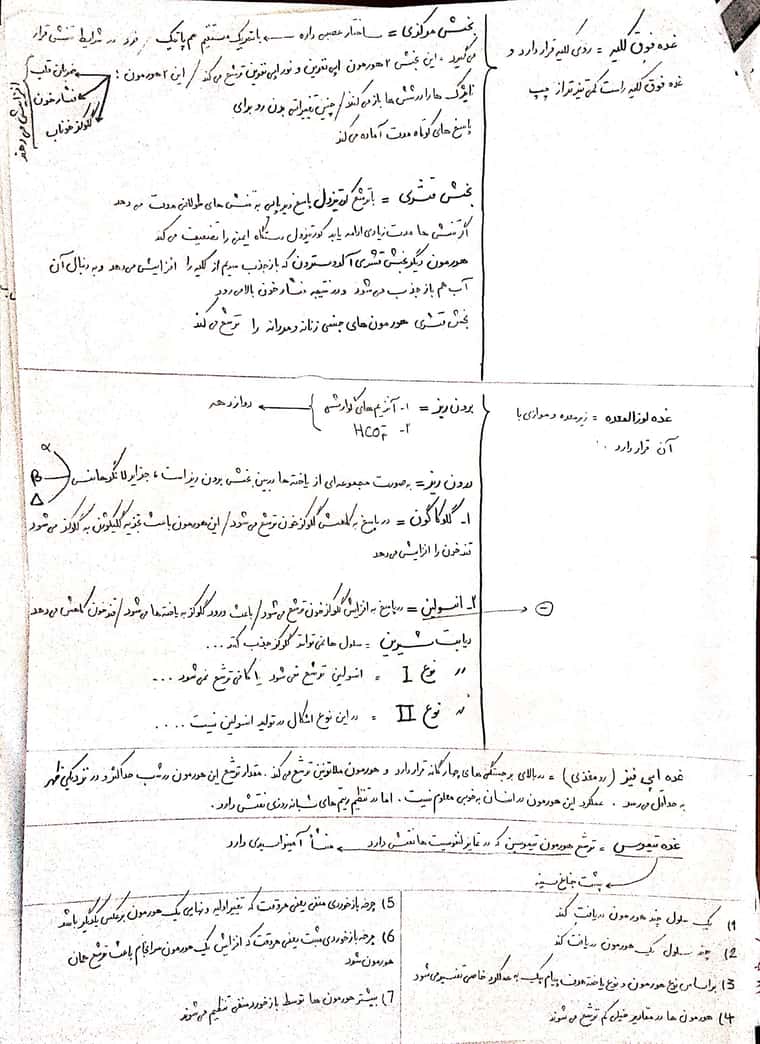 غده فوق کلیه = روی کلیه قرار دارد و
غده فوق کلیه راست کمی تیزتر از چپ
بخش مرکزی = ساختار عصبی داره ← با تحریک مستقیم هم پاتیک / فرد در شرایط تنشی قرار
می‌گیرد، این بخش ۲ هورمون اپی نفرین و نوراپی نفرین ترشح می‌کند / این ۲ هورمون :
ضربان قلب
فشار خون
گلوکز خوناب
افزایش می دهند
نایژک ها را در شش ها باز می‌کنند / چنین تغییراتی بدن رو برای
پاسخ های کوتاه مدت آماده می‌کند
بخش قشری = با ترشح کورتیزول پاسخ دیرپایی به تنش های طولانی مدت می دهد
اگر تنش ها مدت زیادی ادامه یابد کورتیزول دستگاه ایمنی را تضعیف می‌کند
هورمون دیگر بخش قشری آلدوسترون که بازجذب سدیم از کلیه را افزایش می‌دهد و به دنبال آن
آب هم بازجذب می‌شود و در نتیجه فشار خون بالا می‌رود
بخش قشری هورمون های جنسی زنانه و مردانه را ترشح می‌کند
غده لوزالمعده = زیر معده و موازی با
آن قرار دارد ..
برون ریز = ۱- آنزیم های گوارشی ← دوازدهه
۲- HCO₃
درون ریز = به صورت مجموعه ای از یاخته ها در بین بخش برون ریز است، جزایر لانگرهانس
α
β
Δ
۱- گلوکاگون = در پاسخ به کاهش گلوکز خون ترشح می‌شود / این هورمون باعث تجزیه گلیکوژن به گلوکز می‌شود
قند خون را افزایش می‌دهد
۲- انسولین = در پاسخ به افزایش گلوکز خون ترشح می‌شود / باعث ورود گلوکز به یاخته ها می‌شود / قند خون کاهش می‌دهد → -
دیابت شیرین = سلول ها نمی توانند گلوکز جذب کنند ...
// نوع I = انسولین ترشح نمی شود یا کافی ترشح نمی‌شود ...
// نوع II = در این نوع اشکال در تولید انسولین نیست ....
غده اپی فیز (رومغزی) = در بالای برجستگی های چهارگانه قرار دارد و هورمون ملاتونین ترشح می‌کند. مقدار ترشح این هورمون در شب حداکثر و در نزدیکی ظهر
به حداقل می رسد . عملکرد این هورمون در انسان به خوبی معلوم نیست. اما در تنظیم ریتم های شبانه روزی نقش دارد.
غده تیموس = ترشح هورمون تیموسین که در تمایز لنفوسیت ها نقش دارد ← منشأ آمینواسیدی دارد
پشت جناغ سینه
1) یک سلول چند هورمون دریافت کند
2) چند سلول یک هورمون دریافت کند
3) براساس نوع هورمون و نوع یاخته هدف پیام پیک به عملکرد خاصی تفسیر می‌شود
4) هورمون ها در مقادیر خیلی کم ترشح می شوند
5) چرخه بازخوردی منفی یعنی هر وقت که تغییر اولیه و نهایی یک هورمون برعکس یکدیگر باشد
6) چرخه بازخوردی مثبت یعنی هر وقت که افزایش یک هورمون سرانجام باعث ترشح همان
هورمون شود
7) بیشتر هورمون ها توسط بازخورد منفی تنظیم می شوند